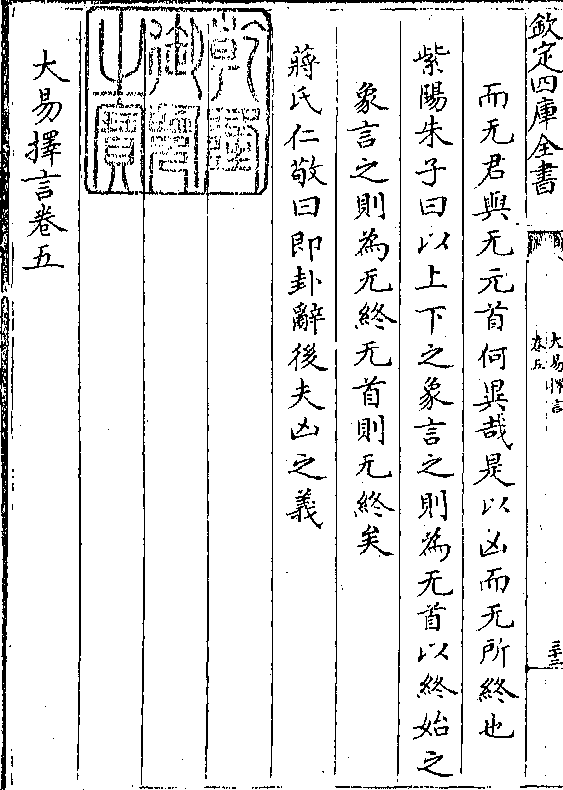 欽定四庫全書
大易擇言
卷五
三十二
而无君與无元首何異哉是以凶而无所終也
紫陽朱子曰以上下之象言之則為无首以終始之
象言之則為无終无首則无終矣
蔣氏仁敬曰即卦辭後夫凶之義
乾隆御覽之寶
大易擇言卷五